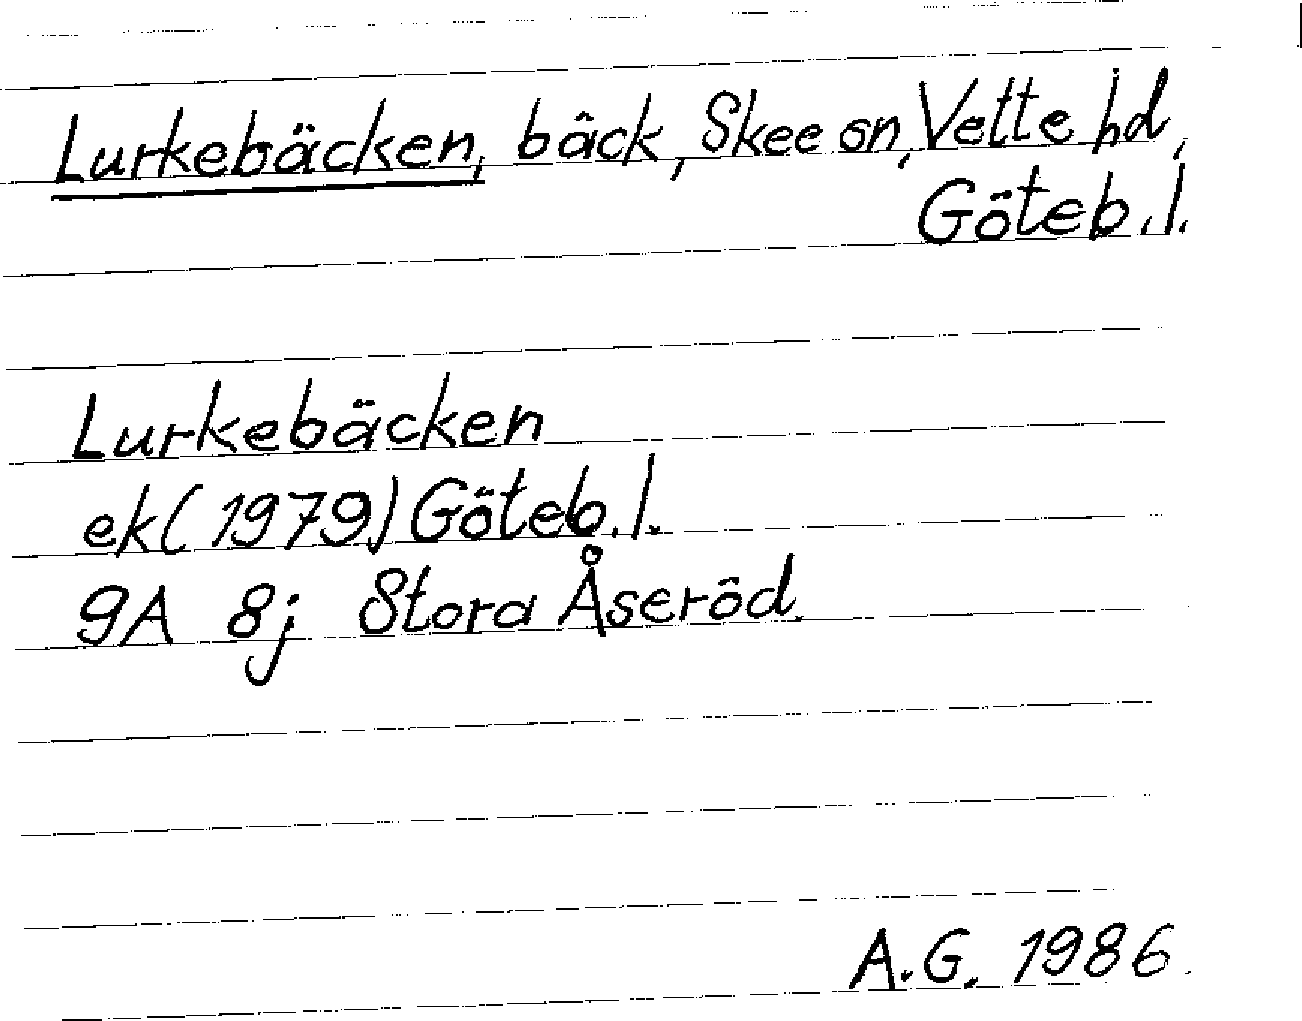 Lurkebäcken, bäck, Skee sn, Vette hd,
Göteb. l.
Lurkebäcken
ek (1979) Göteb. l.
9A 8j Stora Åseröd
A.G. 1986.